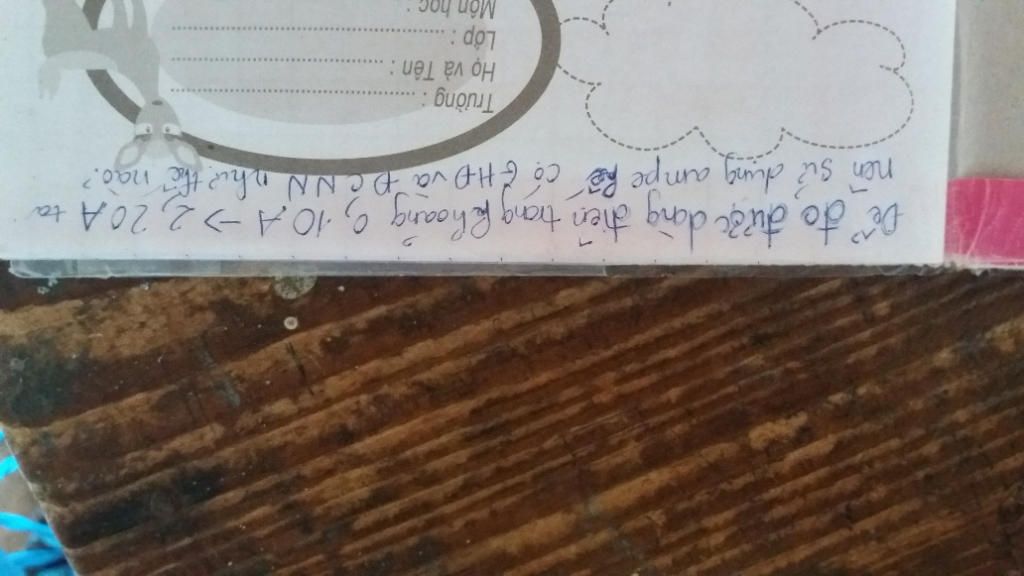 Để đo được dòng điện trong khoảng 0,10A → 2,20A ta
nên sử dụng ampe kế có GHĐ và ĐCNN như thế nào?
Trường :
Họ và Tên :
Lớp :
Môn học :